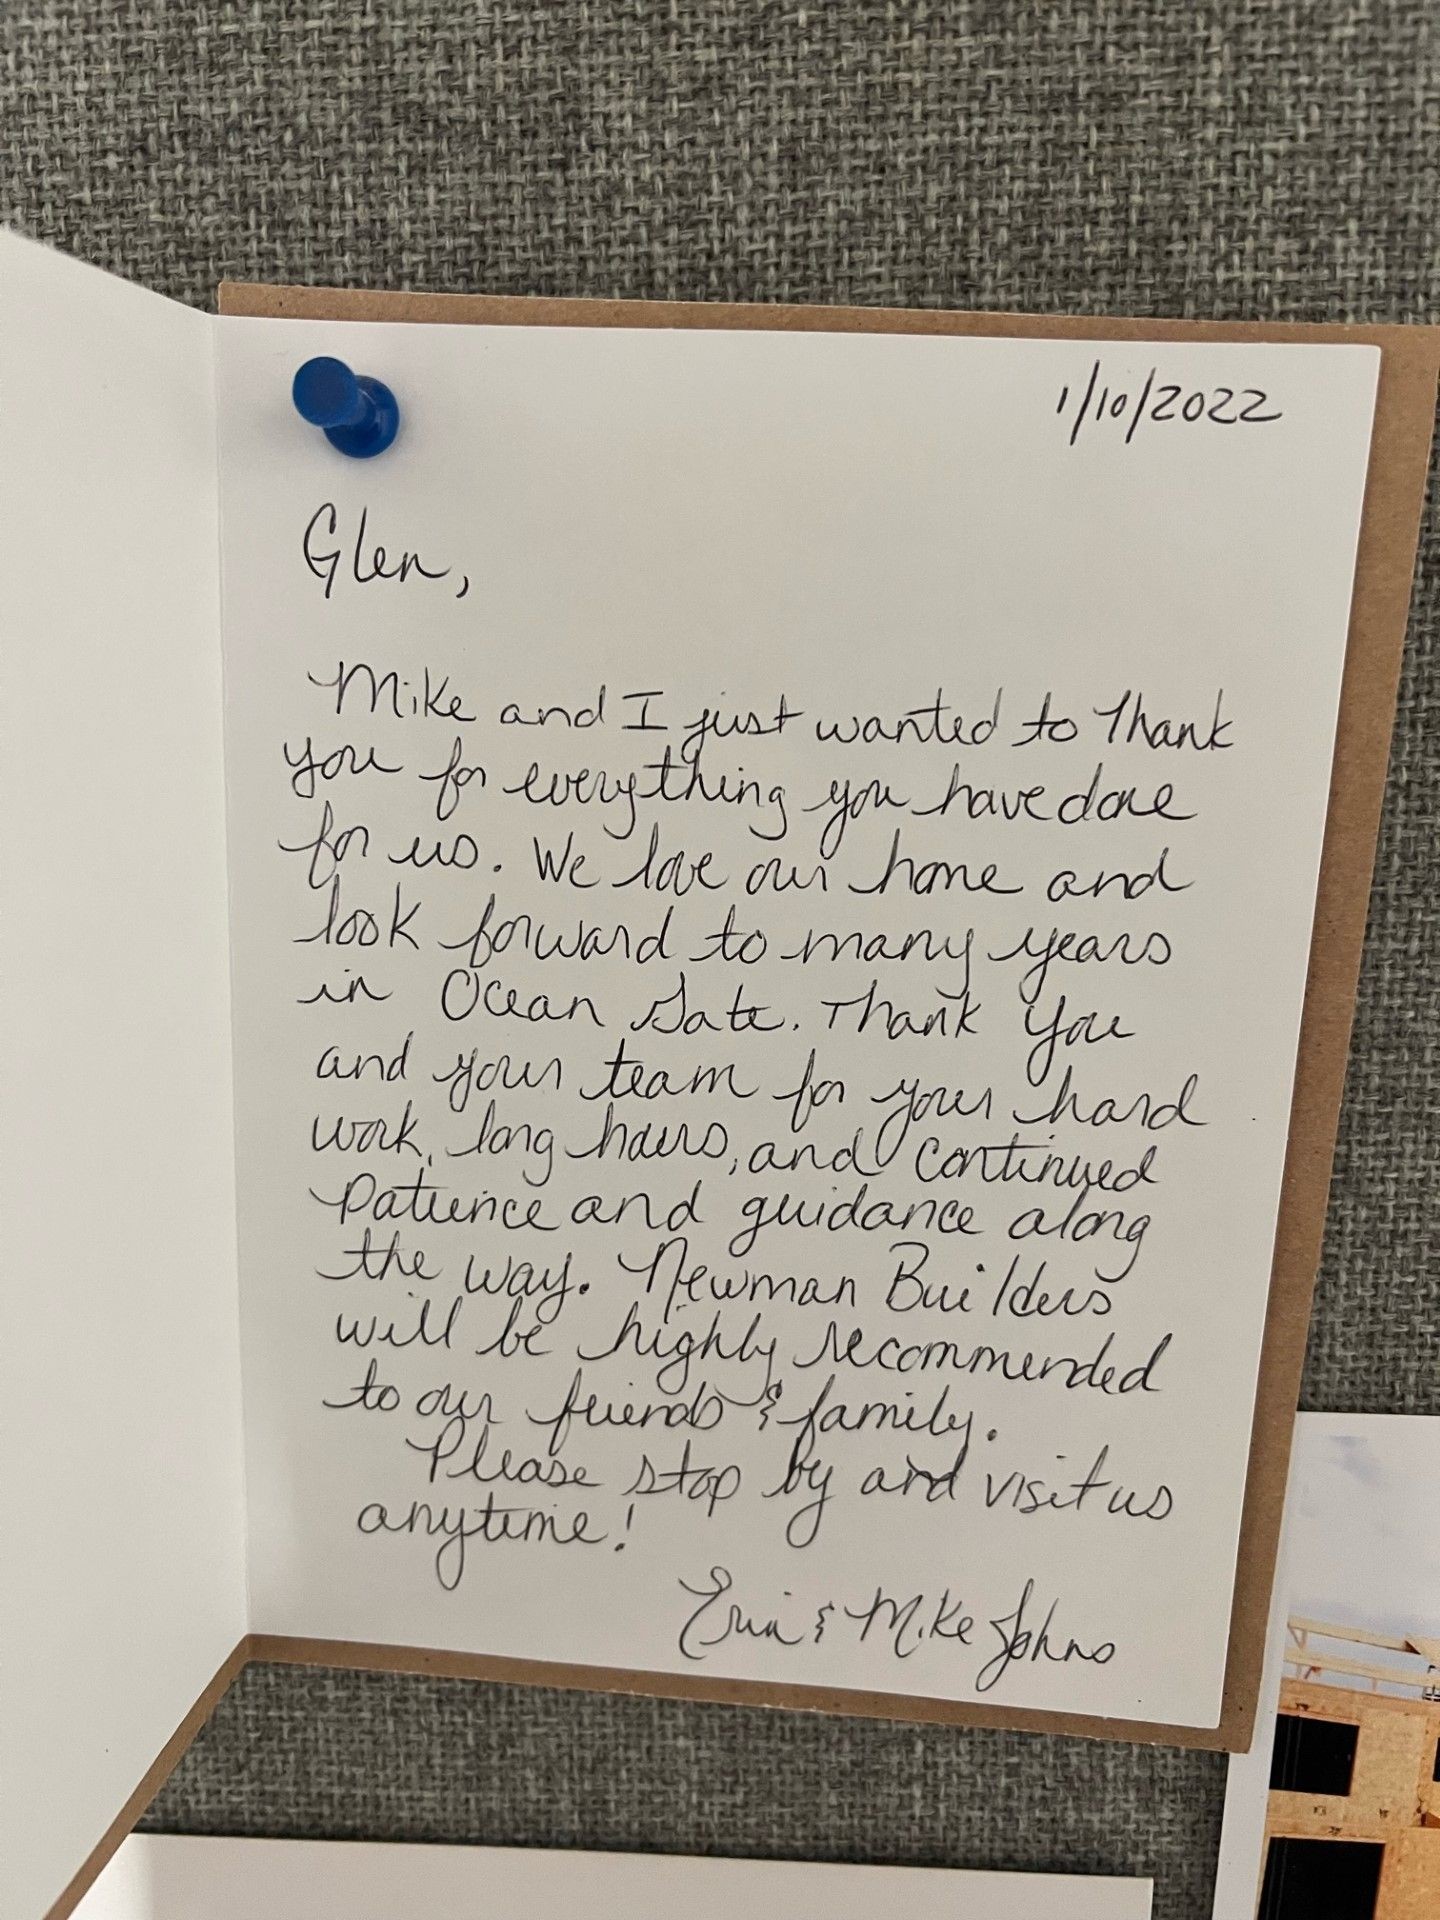 1/10/2022
Glen,
Mike and I just wanted to Thank
you for everything you have done
for us. We love our home and
look forward to many years
in Ocean Gate. Thank you
and your team for your hard
work, long hours, and continued
patience and guidance along
the way. Newman Builders
will be highly recommended
to our friends & family.
Please stop by and visit us
anytime!
Erin & Mike Johns